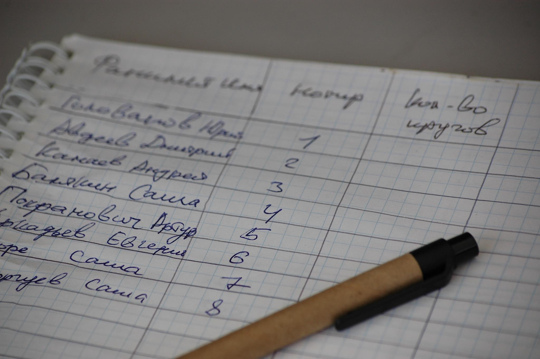 Фамилия Имя номер Кол-во кругов
Голованов Юрий 1
Авдеев Дмитрий 2
Канаев Андрей 3
Балякин Саша 4
Покранович Артур 5
Евгений 6
Саша 7
Саша 8